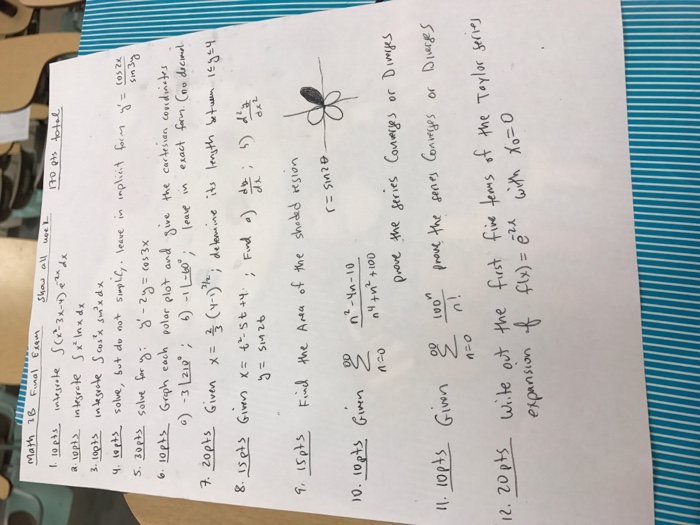 Math 3B Final Exam show all work 170 pts total
1. 10pts integrate ∫(x²-3x-4) e^-2x dx
2. 10pts integrate ∫x² ln x dx
3. 10pts integrate ∫cos²x sin³x dx
4. 10pts solve, but do not simplify, leave in implicit form y' = cos2x / sin3y
5. 30pts solve for y: y' - 2y = cos3x
6. 10pts Graph each polar plot and give the cartesian coordinates
a) -3∠210° ; b) -1∠-60° ; leave in exact form. (no decimal
7. 20pts Given x = 2/3 (y-1)^3/2 ; determine its length between 1≤y≤4
8. 15pts Given x = t²-5t+4 ; Find a) dy/dx ; b) d²y/dx²
y = sin2t
9. 15pts Find the Area of the shaded region
r = sin2θ
10. 10pts Given ∞ Σ n=0 n²-4n-10 / n⁴+n²+100
prove the series Converges or Diverges
11. 10pts Given ∞ Σ n=0 100^n / n! prove the series Converges or Diverges
12. 20pts Write out the first five terms of the Taylor series
expansion of f(x) = e^-2x with x₀=0